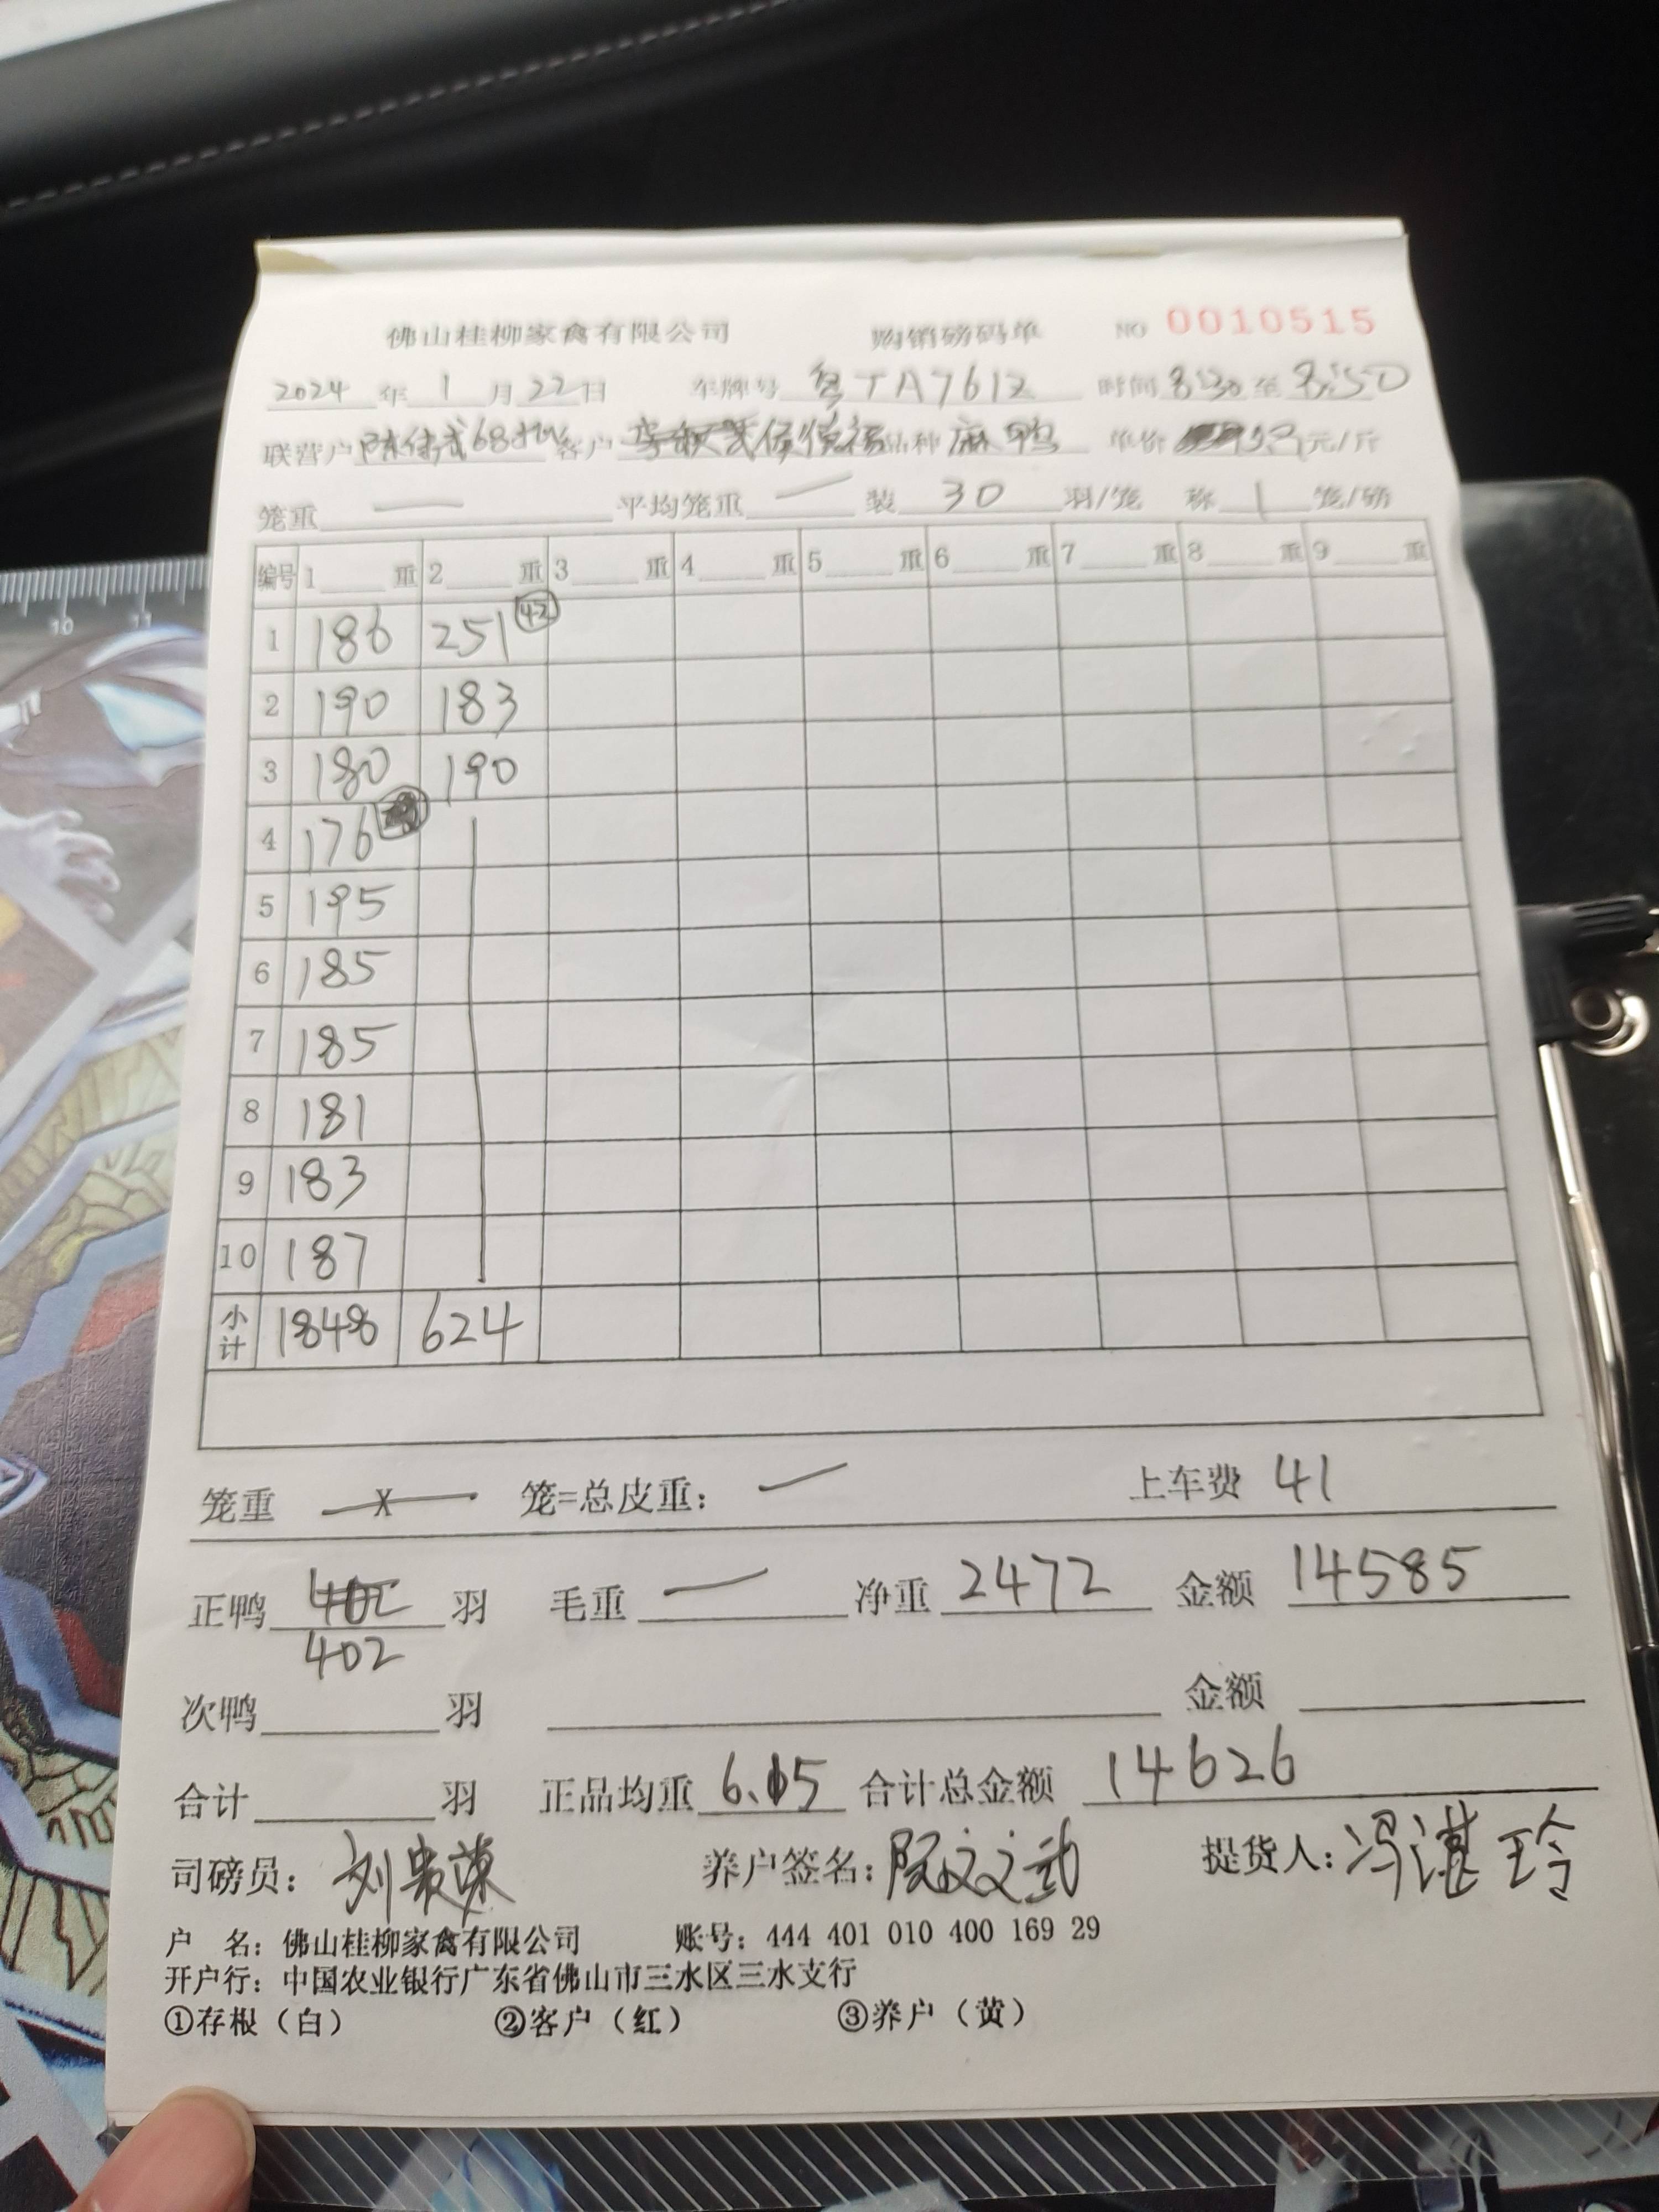 佛山桂柳家禽有限公司 购销磅码单 NO 0010515
2024 年 1 月 22 日 车牌号 粤TA7612 时间 8:30 至 8:50
联营户 客户 品种 麻鸭 单价 元/斤
笼重 — 平均笼重 — 装 30 羽/笼 称 1 笼/磅
编号 1 重 2 重 3 重 4 重 5 重 6 重 7 重 8 重 9 重
1 186 251 42
2 190 183
3 180 190
4 176
5 195
6 185
7 185
8 181
9 183
10 187
小计 1848 624
笼重 — x — 笼=总皮重: — 上车费 41
正鸭 402 羽 毛重 — 净重 2472 金额 14585
402
次鸭 羽 金额
合计 羽 正品均重 6.15 合计总金额 14626
司磅员: 养户签名: 提货人: 冯湛玲
户 名: 佛山桂柳家禽有限公司 账号: 444 401 010 400 169 29
开户行: 中国农业银行广东省佛山市三水区三水支行
①存根（白） ②客户（红） ③养户（黄）
10 11